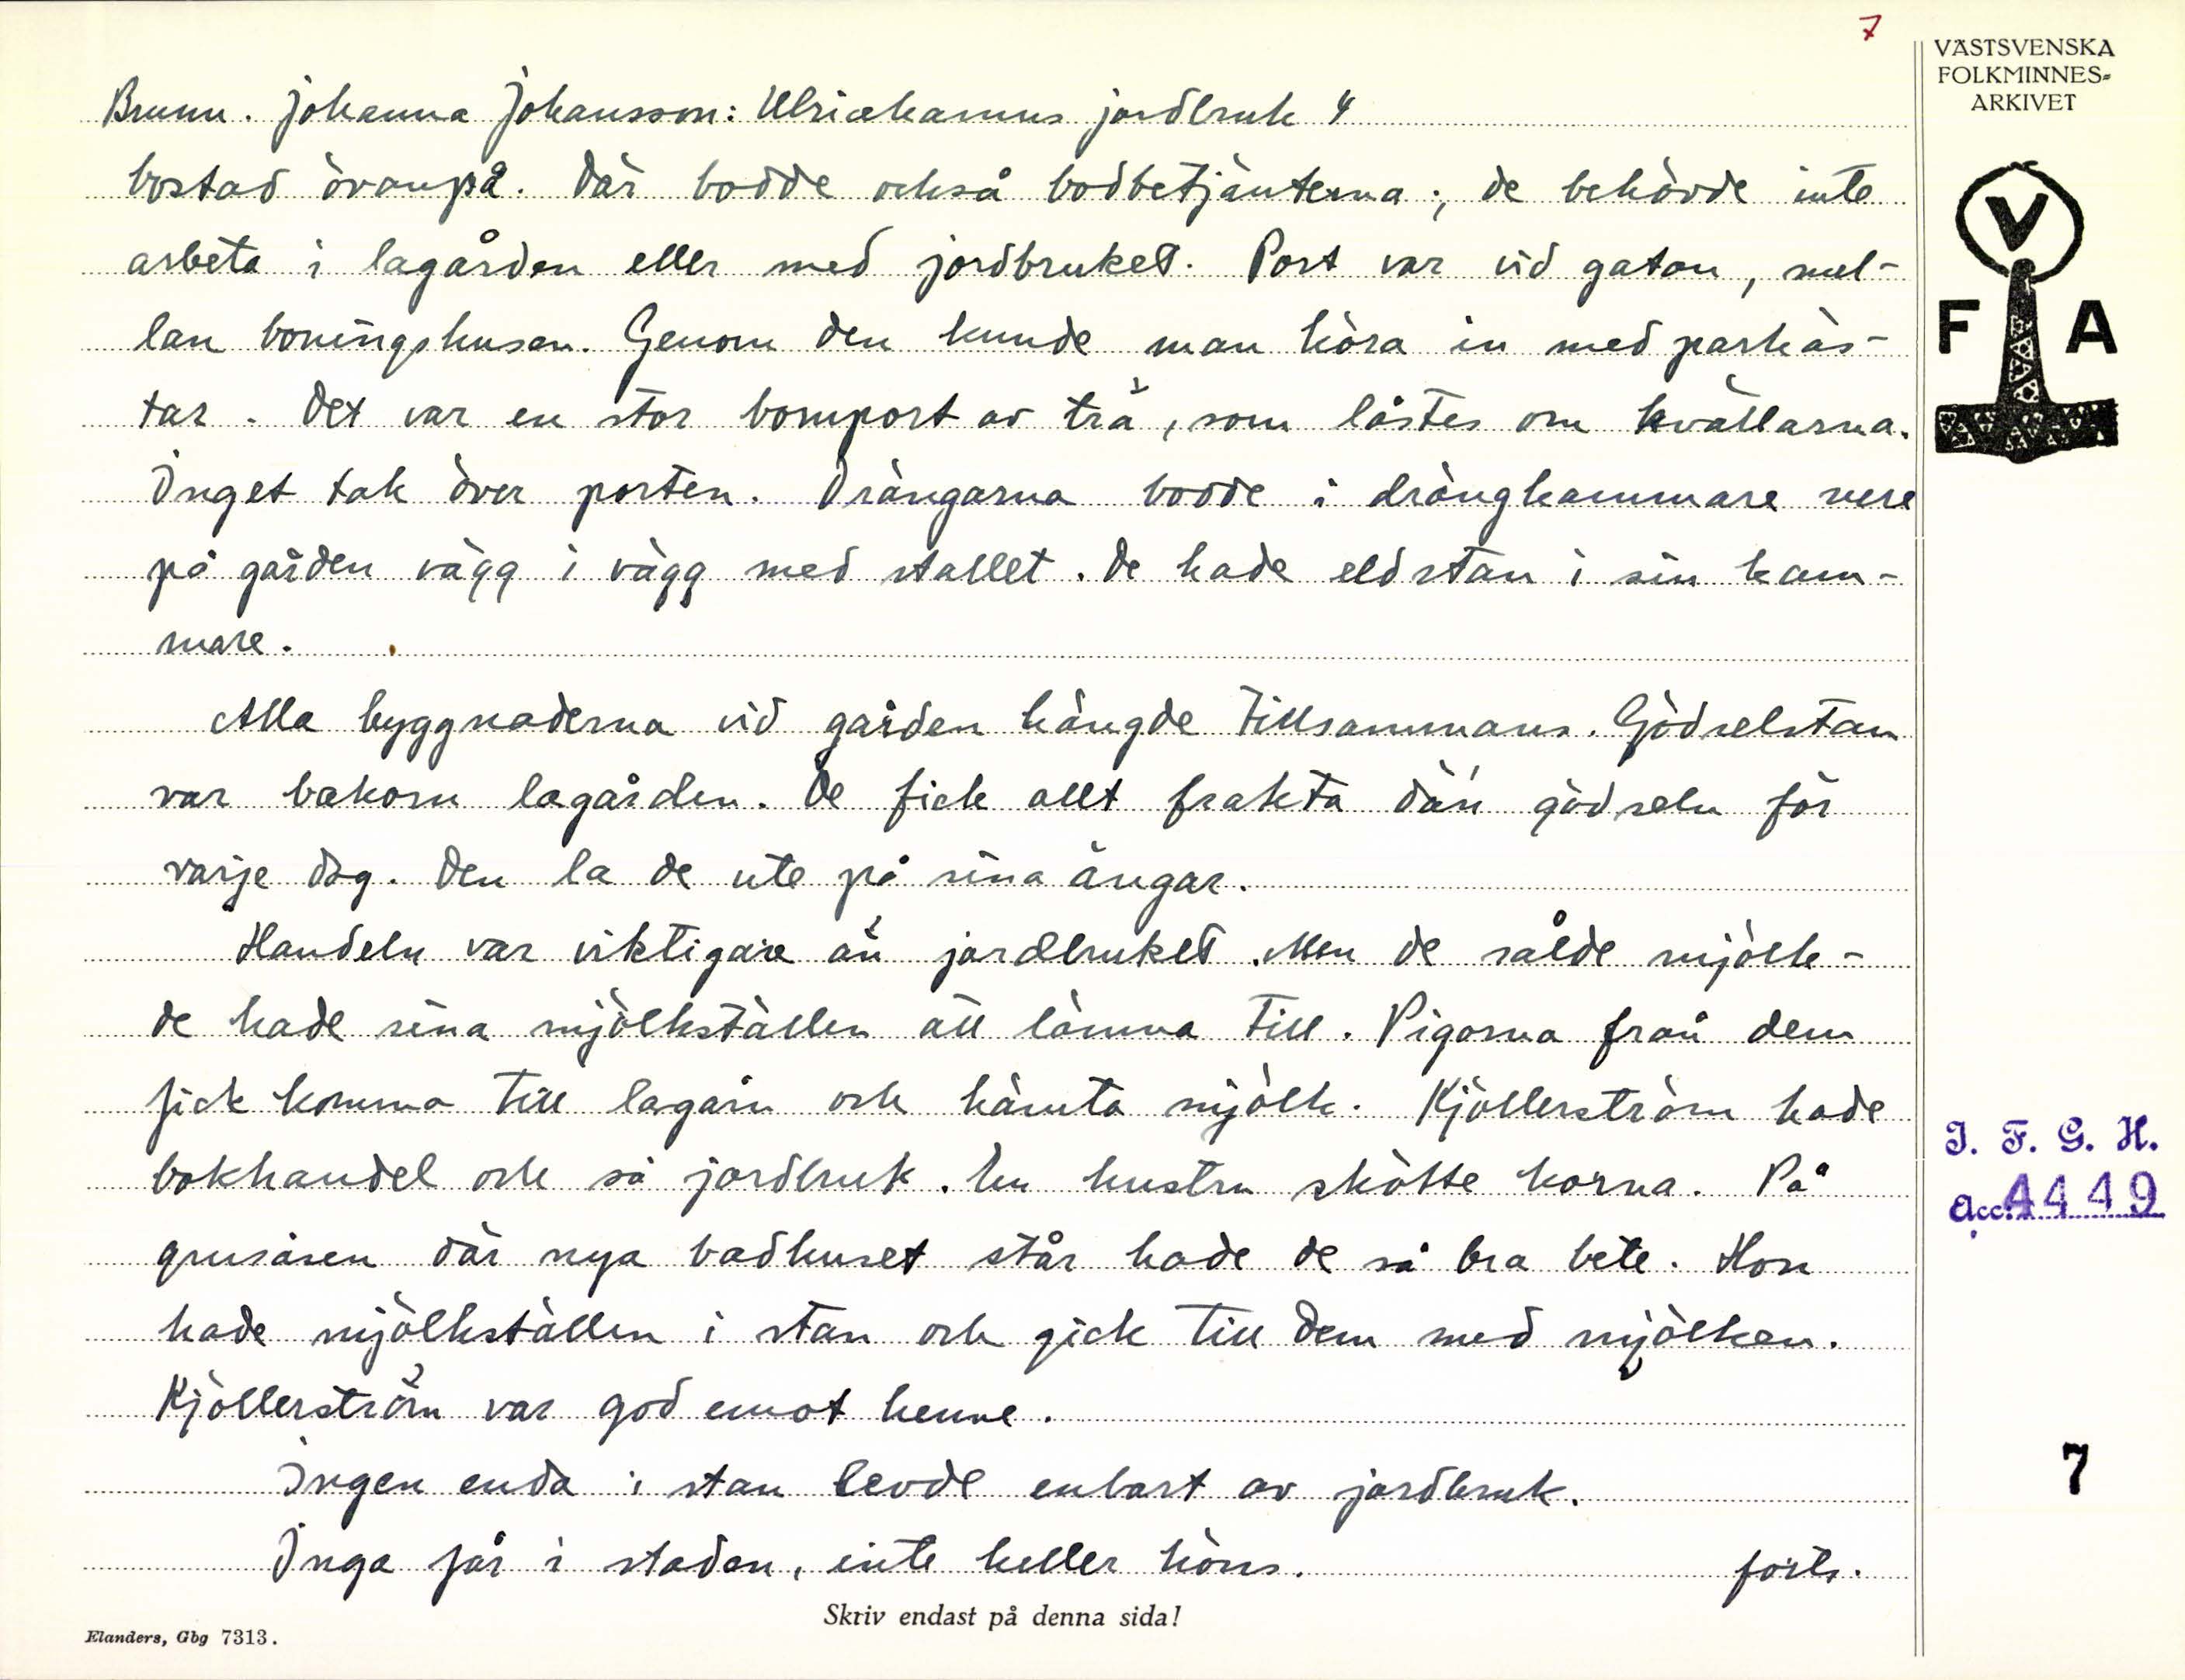 7
VÄSTSVENSKA
FOLKMINNES-
ARKIVET
Brunn. Johanna Johansson: Ulricehamns jordbruk 4
bostad ovanpå. Där bodde också bodbetjänterna; de behövde inte
arbeta i lagården eller med jordbruket. Port var vid gatan, mel-
lan boningshusen. Genom den kunde man köra in med parhäs-
tar. Det var en stor bomport av trä, som låstes om kvällarna.
Inget tak över porten. Drängarna bodde i drängkammare nere
på gården vägg i vägg med stallet. De hade eldstan i sin kam-
mare.
Alla byggnaderna vid gården hängde tillsammans. Gödselstan
var bakom lagården. De fick allt frakta dän gödseln för
varje dag. Den la de ute på sina ängar.
Handeln var viktigare än jordbruket. Men de sålde mjölk -
de hade sina mjölkställen att lämna till. Pigorna från dem
fick komma till lagårn och hämta mjölk. Kjöllerström hade
bokhandel och så jordbruk. Hu hustru skötte korna. På
grusåsen där nya badhuset står hade de så bra bete. Hon
hade mjölkställen i stan och gick till dem med mjölken.
Kjöllerström var god emot henne.
Ingen enda i stan levde enbart av jordbruk.
Inga får i staden, inte heller höns.
forts.
V
F A
I. F. G. H.
Acc. 4449
7
Skriv endast på denna sida!
Elanders, Gbg 7313.